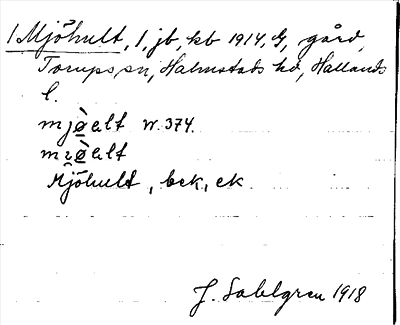 1 Mjöhult, 1, jb, kb 1914, G, gård,
Torups sn, Halmstads hd, Hallands
l.
mjø̀əlt W. 374.
mɪø̀əlt
Mjöhult, bek, ek
J. Sahlgren 1918